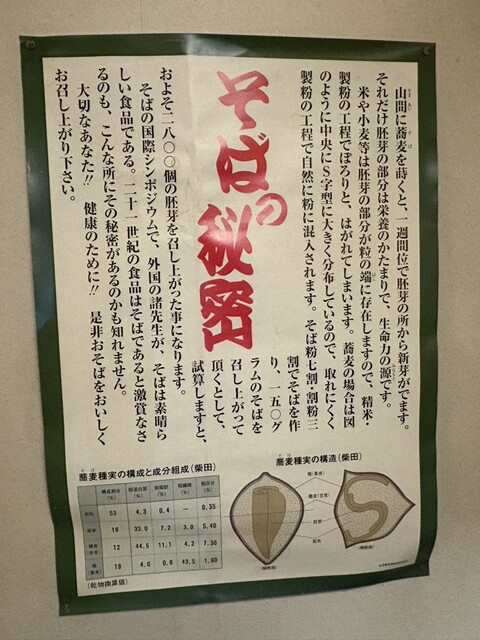 そばの秘密
山間に蕎麦を蒔くと、一週間位で胚芽の所から新芽がでます。
それだけ胚芽の部分は栄養のかたまりで、生命力の源です。
米や小麦等は胚芽の部分が粒の端に存在しますので、精米・
製粉の工程でぽろりと、はがれてしまいます。蕎麦の場合は図
のように中央にS字型に大きく分布しているので、取れにくく
製粉の工程で自然に粉に混入されます。そば粉七割・割粉三
割でそばを作
り、一五〇グ
ラムのそばを
召し上がって
頂くとして、
試算しますと、
およそ二八〇〇個の胚芽を召し上がった事になります。
そばの国際シンポジウムで、外国の諸先生が、そばは素晴ら
しい食品である。二十一世紀の食品はそばであると激賞なさ
るのも、こんな所にその秘密があるのかも知れません。
大切なあなた!! 健康のために!! 是非おそばをおいしく
お召し上がり下さい。
蕎麦種実の構成と成分組成(柴田)
構成割合(%) 粗蛋白質(%) 粗脂肪(%) 粗繊維(%) 粗灰分(%)
胚乳 53 4.3 0.4 — 0.35
胚芽 19 33.0 7.2 3.0 5.40
12 44.5 11.1 4.2 7.30
19 4.0 0.8 43.5 1.60
(乾物換算値)
蕎麦種実の構造(柴田)
胚芽
胚乳